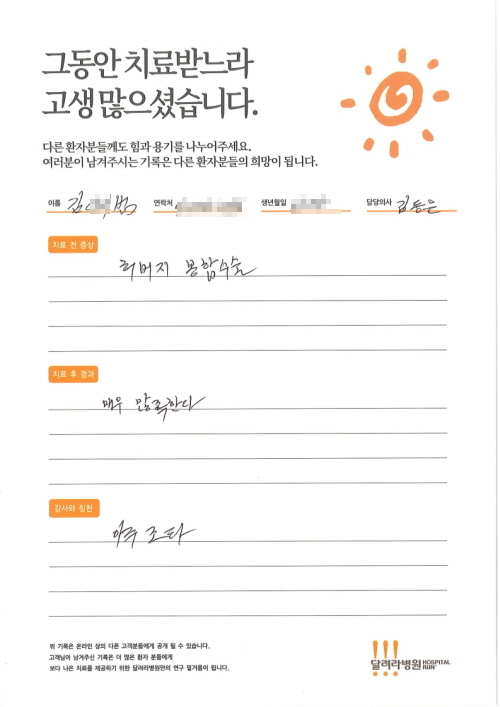 그동안 치료받느라
고생 많으셨습니다.
다른 환자분들께도 힘과 용기를 나누어주세요.
여러분이 남겨주시는 기록은 다른 환자분들의 희망이 됩니다.
이름 김 범 연락처 생년월일 담당의사 김동은
치료 전 증상
허벅지 봉합수술
치료 후 경과
매우 만족한다
감사와 칭찬
아주 조타
위 기록은 온라인 상의 다른 고객분들에게 공개 될 수 있습니다.
고객님이 남겨주신 기록은 더 많은 환자 분들에게
보다 나은 치료를 제공하기 위한 달려라병원만의 연구 밑거름이 됩니다.
달려라병원 HOSPITAL RUN